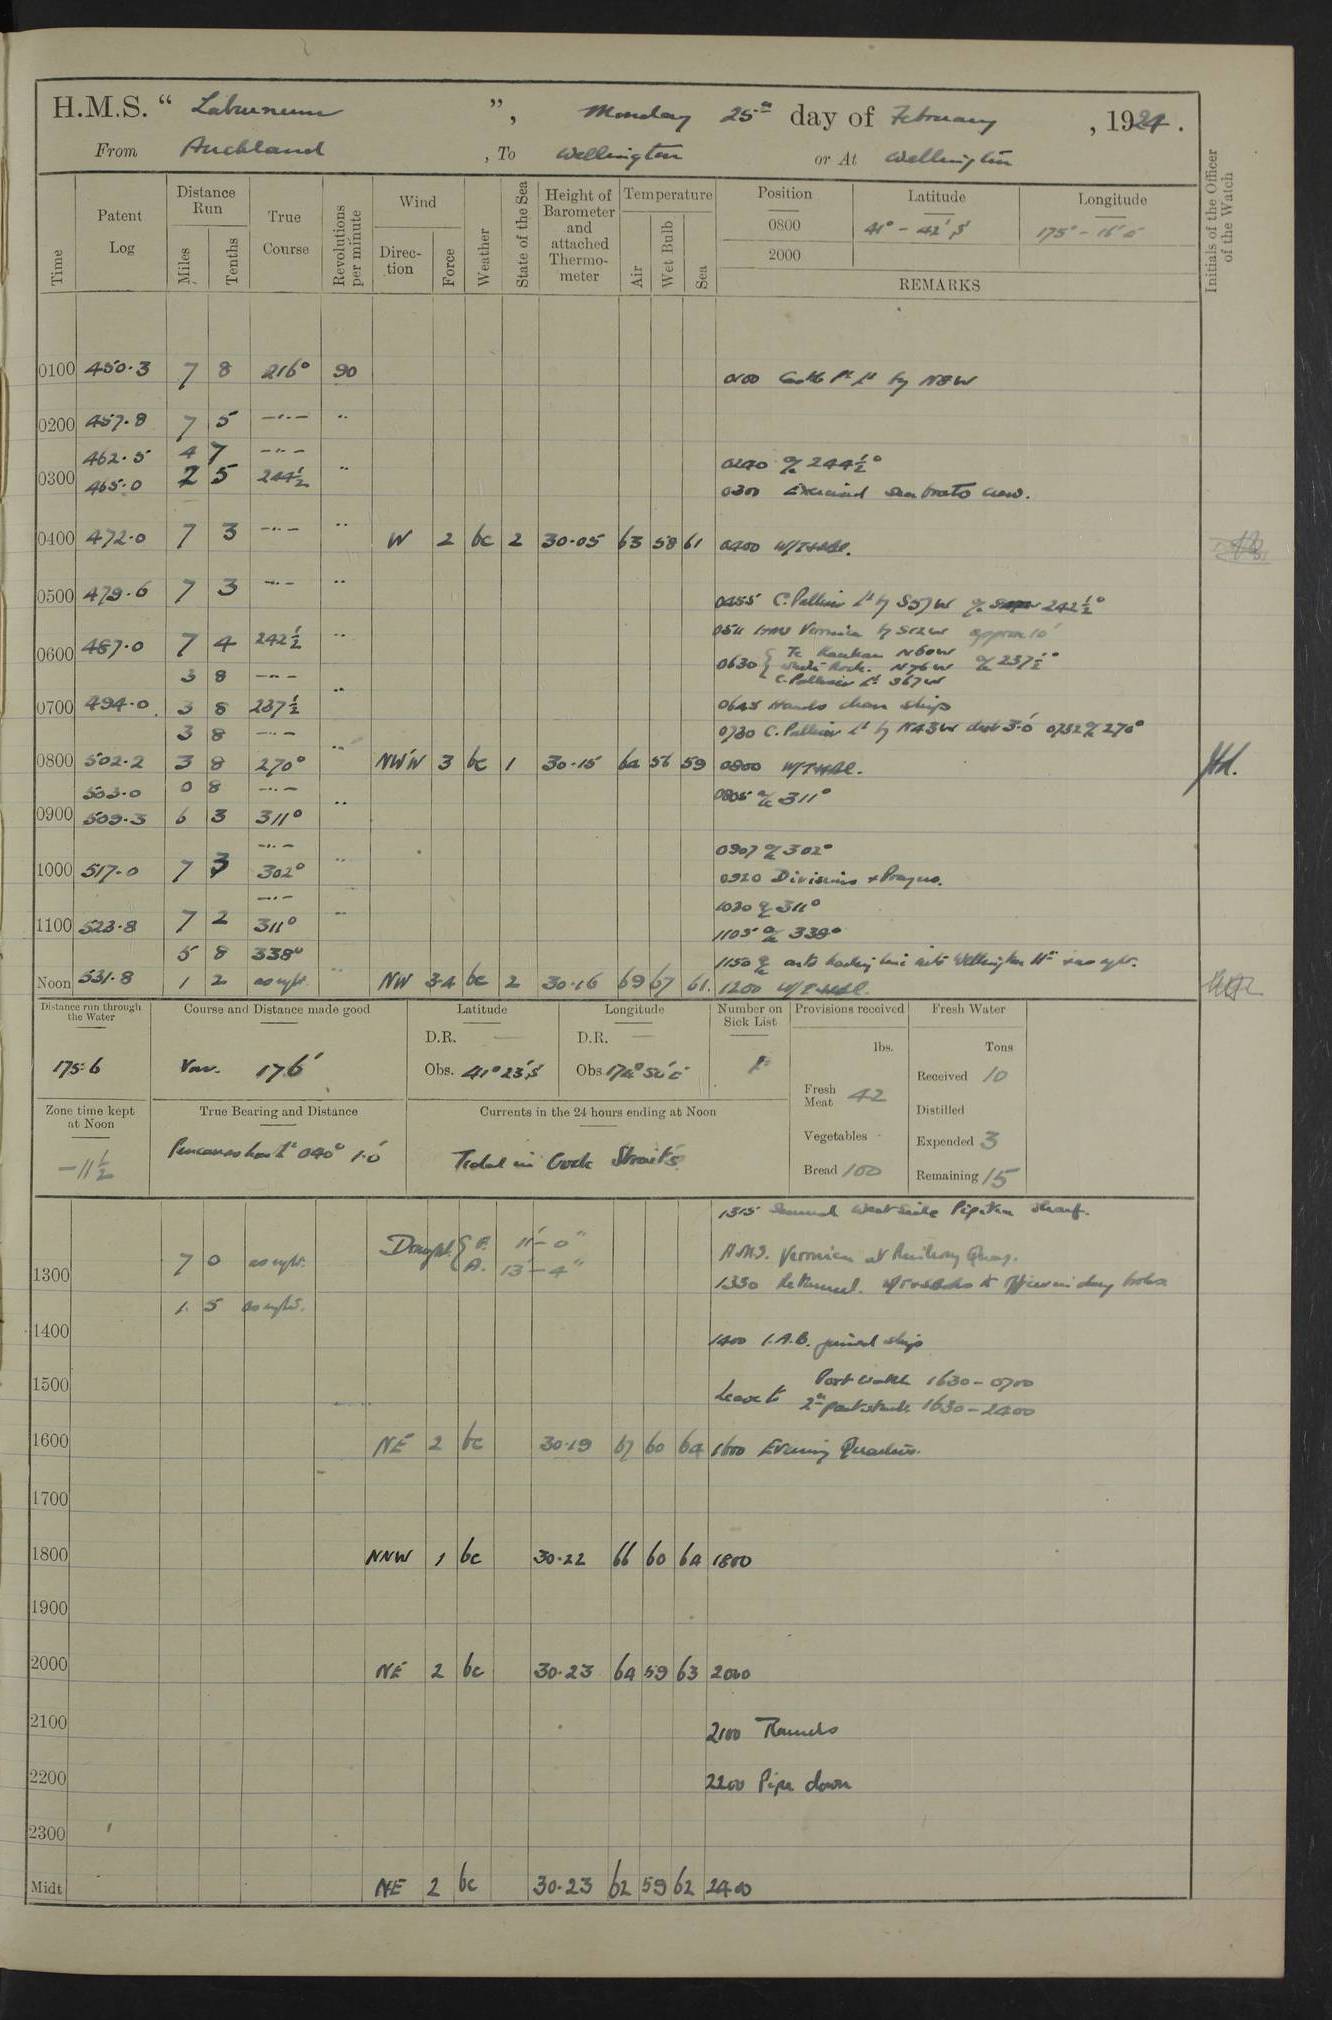 H.M.S. “ Laburnum ”, Monday 25th day of February, 1924.
From Auckland, To Wellington or At Wellington
Time Patent Log Distance Run Miles Tenths True Course Revolutions per minute Wind Direction Force Weather State of the Sea Height of Barometer and attached Thermometer Temperature Air Wet Bulb Sea Position Latitude Longitude
Initials of the Officer of the Watch
0800 41° - 42' S 175° - 16' E
2000
REMARKS
0100 450.3 7 8 216° 90 0100 Castle Pt Lt by N8W
0200 457.8 7 5 -"- "
462.5 4 7 -"- 0240 a/c 244½°
0300 465.0 2 5 244½ " 0300 Exercised sea boats crew.
0400 472.0 7 3 -"- " W 2 bc 2 30.05 63 58 61 0400 W/T
0500 479.6 7 3 -"- " 0455 C. Palliser Lt by S57W a/c 242½°
0511 HMS Veronica by S12W approx 10'
0600 487.0 7 4 242½ " 0630 { Te Kaukau N60W a/c 237½°
Rock. N76W
3 8 -"- C. Palliser Lt S67W
0700 494.0 3 8 237½ " 0645 Hands clean ship
3 8 -"- 0730 C. Palliser Lt by N43W dist 3.0' 0752 a/c 270°
0800 502.2 3 8 270° " NW'W 3 bc 1 30.15 64 56 59 0800 W/T
503.0 0 8 -"- 0805 a/c 311°
0900 509.3 6 3 311° "
-"- 0907 a/c 302°
1000 517.0 7 3 302° " 0920 Divisions & Prayers.
-"- 1030 a/c 311°
1100 523.8 7 2 311° " 1105 a/c 338°
5 8 338° 1150 a/c onto leading line into Wellington Hr & as reqte.
Noon 531.8 1 2 as reqte. NW 3-4 bc 2 30.16 69 67 61. 1200 W/T
Distance run through the Water 175.6
Course and Distance made good Var. 176'
Latitude D.R. — Obs. 41° 23' S
Longitude D.R. — Obs 174° 50' E
Number on Sick List
Provisions received lbs. Fresh Meat 42 Vegetables - Bread 100
Fresh Water Tons Received 10 Distilled Expended 3 Remaining 15
Zone time kept at Noon -11½
True Bearing and Distance Pencarrow Lt 040° 1.0'
Currents in the 24 hours ending at Noon Tidal in Cook Straits
1315 Secured West side Pipitea Wharf.
Draught { F. 11'-0" A. 13'-4"
H.M.S. Veronica at Railway Quay.
1300 7 0 as reqte.
1330
1 5 as reqte.
1400 1400 1 A.B. joined ship
1500 Leave to Port watch 1630-0700
2nd part stbd. 1630-2400
1600 NE 2 bc 30.19 67 60 64 1600 Evening Quarters.
1700
1800 NNW 1 bc 30.22 66 60 64 1800
1900
2000 NE 2 bc 30.23 64 59 63 2000
2100 2100 Rounds
2200 2200 Pipe down
2300
Midt NE 2 bc 30.23 62 59 62 2400